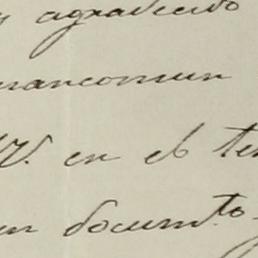 y agradecido
mancomun
V. en el ter
un docum.to